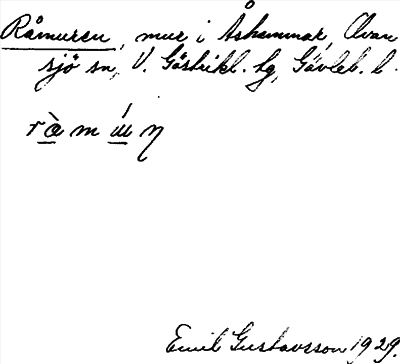 Råmuren, mur i Åshammar, Ovan
sjö sn, V. Gästrikl. hg, Gävleb. l.
r à m ú n
Emil Gustavsson 1929.